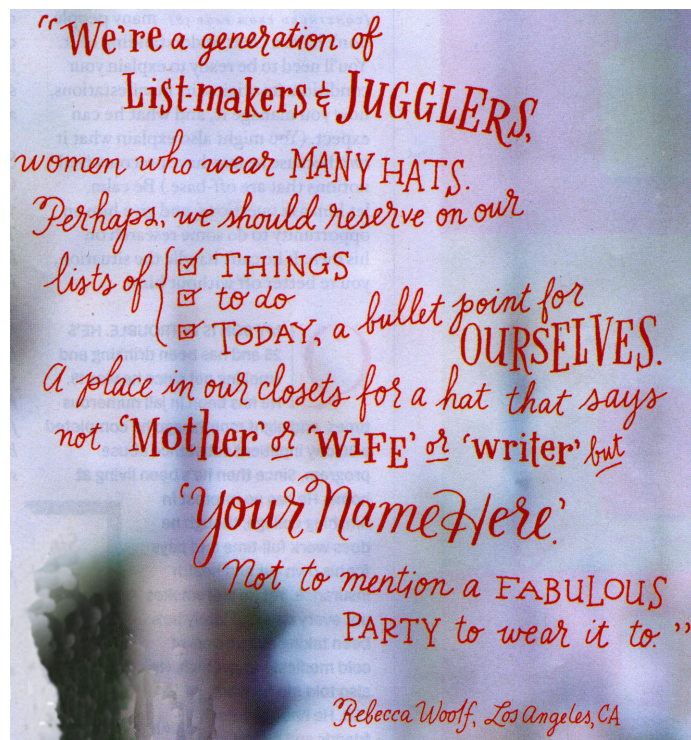 “We're a generation of
List-makers & JUGGLERS,
women who wear MANY HATS.
Perhaps, we should reserve on our
lists of { THINGS
to do
TODAY, a bullet point for
OURSELVES.
A place in our closets for a hat that says
not 'Mother' or 'WIFE' or 'writer' but
'Your Name Here.'
Not to mention a FABULOUS
PARTY to wear it to.”
Rebecca Woolf, Los Angeles, CA